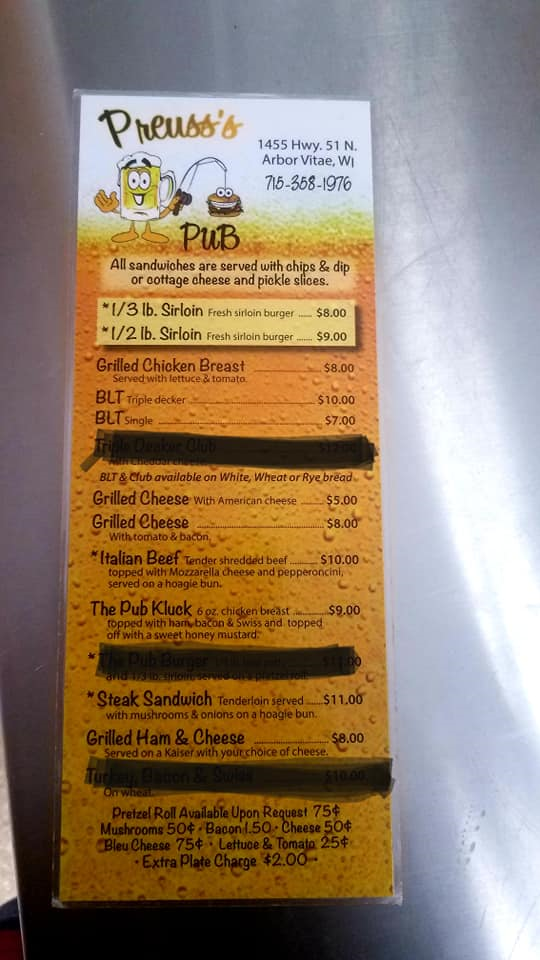 Preuss's
1455 Hwy. 51 N.
Arbor Vitae, WI
715-358-1976
PUB
All sandwiches are served with chips & dip
or cottage cheese and pickle slices.
*1/3 lb. Sirloin Fresh sirloin burger ..... $8.00
*1/2 lb. Sirloin Fresh sirloin burger ...... $9.00
Grilled Chicken Breast ........................ $8.00
Served with lettuce & tomato.
BLT Triple decker ........................................ $10.00
BLT Single .................................................. $7.00
Triple Decker Club $12.00
with Cheddar cheese
BLT & Club available on White, Wheat or Rye bread
Grilled Cheese With American cheese ........ $5.00
Grilled Cheese ........................................ $8.00
With tomato & bacon.
*Italian Beef Tender shredded beef ......... $10.00
topped with Mozzarella cheese and pepperoncini,
served on a hoagie bun.
The Pub Kluck 6 oz. chicken breast ............ $9.00
topped with ham, bacon & Swiss and topped
off with a sweet honey mustard.
*The Pub Burger $11.00
and 1/3 lb. sirloin, served on a pretzel roll.
*Steak Sandwich Tenderloin served ...... $11.00
with mushrooms & onions on a hoagie bun.
Grilled Ham & Cheese ........................ $8.00
Served on a Kaiser with your choice of cheese.
Turkey, Bacon & Swiss $10.00
On wheat.
Pretzel Roll Available Upon Request 75¢
Mushrooms 50¢ • Bacon 1.50 • Cheese 50¢
Bleu Cheese 75¢ • Lettuce & Tomato 25¢
• Extra Plate Charge $2.00 •